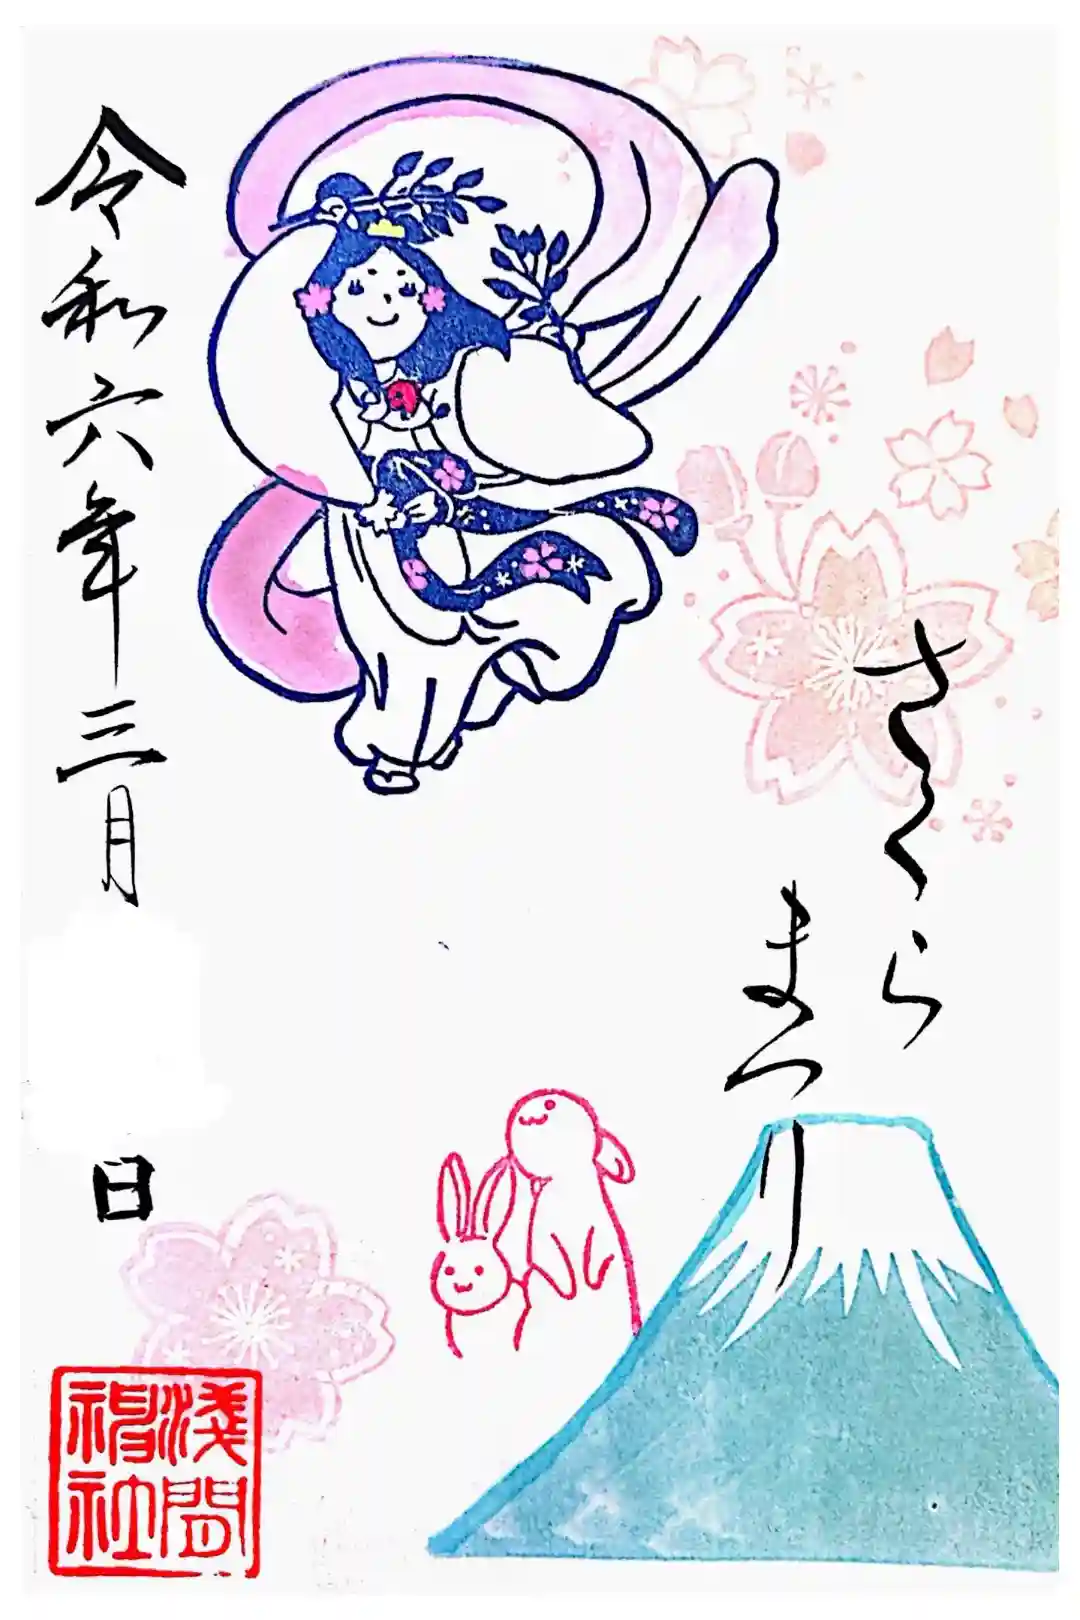 さくら
まつり
令和六年三月 日
淺間
神社